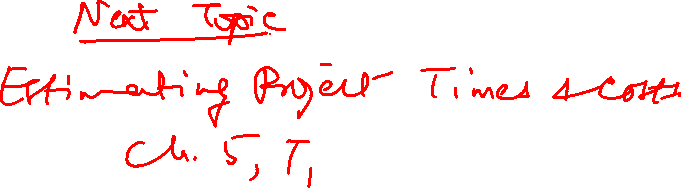 Next Topic
Estimating Project Times & Costs
Ch. 5, T1